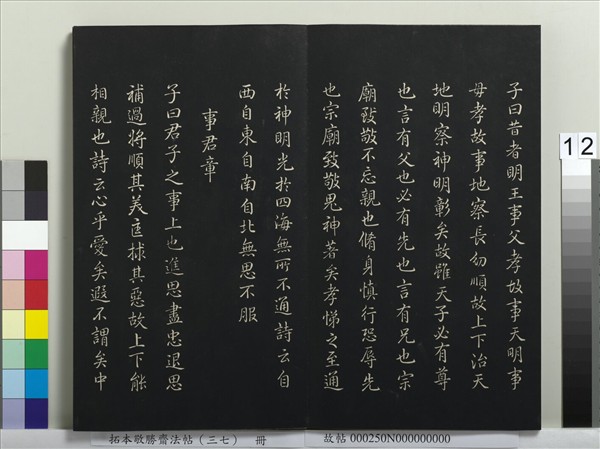 子曰昔者明王事父孝故事天明事
母孝故事地察長幼順故上下治天
地明察神明彰矣故雖天子必有尊
也言有父也必有先也言有兄也宗
廟致敬不忘親也脩身慎行恐辱先
也宗廟致敬鬼神著矣孝悌之至通
於神明光於四海無所不通詩云自
西自東自南自北無思不服
事君章
子曰君子之事上也進思盡忠退思
補過將順其美匡救其惡故上下能
相親也詩云心乎愛矣遐不謂矣中
12
拓本敬勝齋法帖(三七) 冊
故帖 000250N000000000